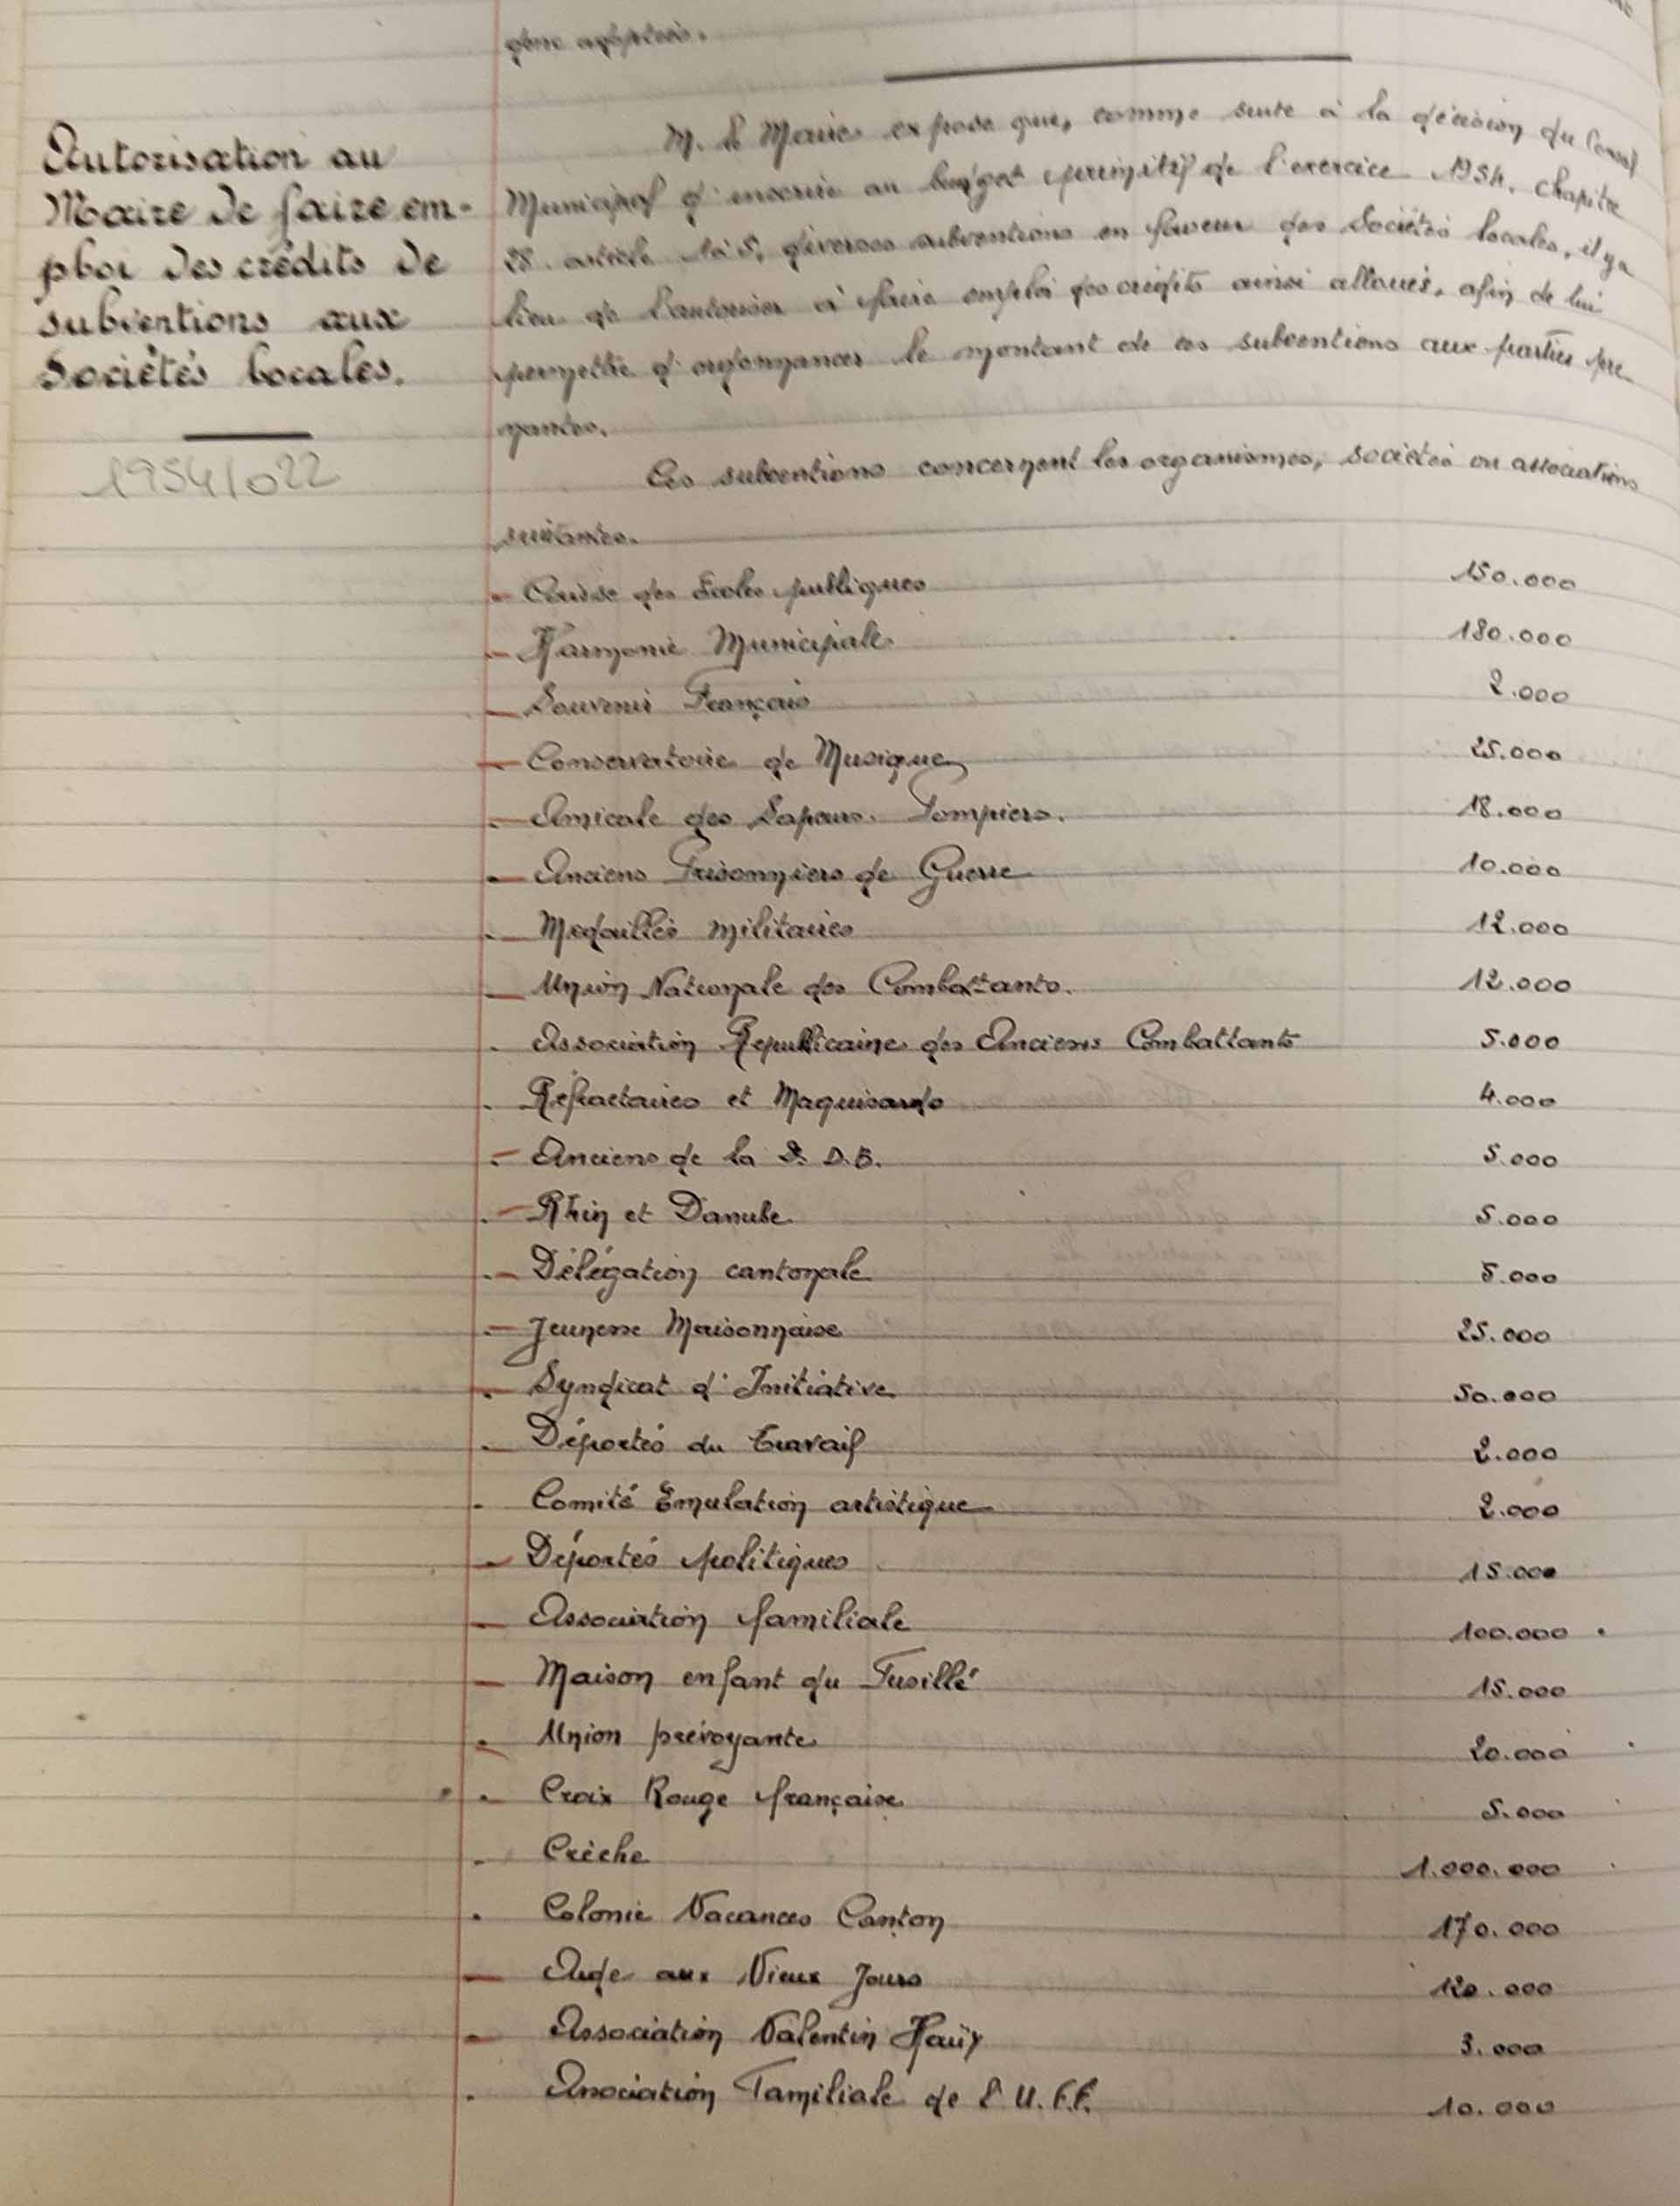 donc adoptés.
Autorisation au
Maire de faire em-
ploi des crédits de
subventions aux
Sociétés locales.
1954/022
M. le Maire expose que, comme suite à la décision du Conseil
Municipal d'inscrire au budget primitif de l'exercice 1954. chapitre
28. article 1 à 5, diverses subventions en faveur des Sociétés locales, il y a
lieu de l'autoriser à faire emploi des crédits ainsi alloués, afin de lui
permettre d'ordonnancer le montant de ces subventions aux parties pre
nantes.
Ces subventions concernent les organismes, sociétés ou associations
suivantes.
- Caisse des Ecoles publiques 150.000
- Harmonie Municipale 180.000
- Souvenir Français 2.000
- Conservatoire de Musique 25.000
- Amicale des Sapeurs-Pompiers. 18.000
- Anciens Prisonniers de Guerre 10.000
- Médaillés militaires 12.000
- Union Nationale des Combattants. 12.000
- Association Républicaine des Anciens Combattants 5.000
- Réfractaires et Maquisards 4.000
- Anciens de la D.B. 5.000
- Rhin et Danube 5.000
- Délégation cantonale 5.000
- Jeunesse Maisonnaise 25.000
- Syndicat d'Initiative 50.000
- Déportés du Travail 2.000
- Comité Emulation artistique 2.000
- Déportés politiques 15.000
- Association familiale 100.000
- Maison enfant du Fusillé 15.000
- Union prévoyante 20.000
- Croix Rouge française 5.000
- Crèche 1.000.000
- Colonie Vacances Canton 170.000
- Aide aux Vieux Jours 120.000
- Association Valentin Haüy 3.000
- Association Familiale de l'U.F.F. 10.000